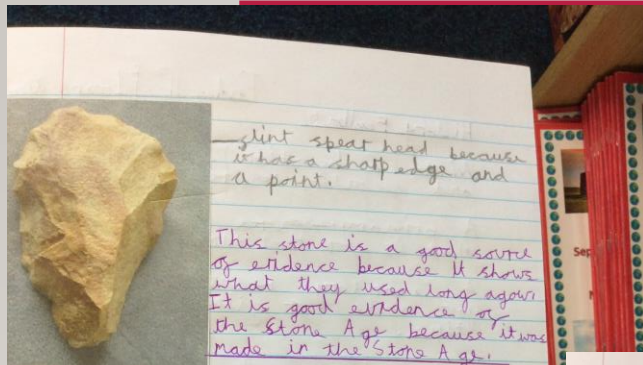 flint spear head because
it has a sharp edge and
a point.
This stone is a good source
of evidence because it shows
what they used long agow.
It is good evidence of
the stone Age because it was
made in the Stone Age.
Sep